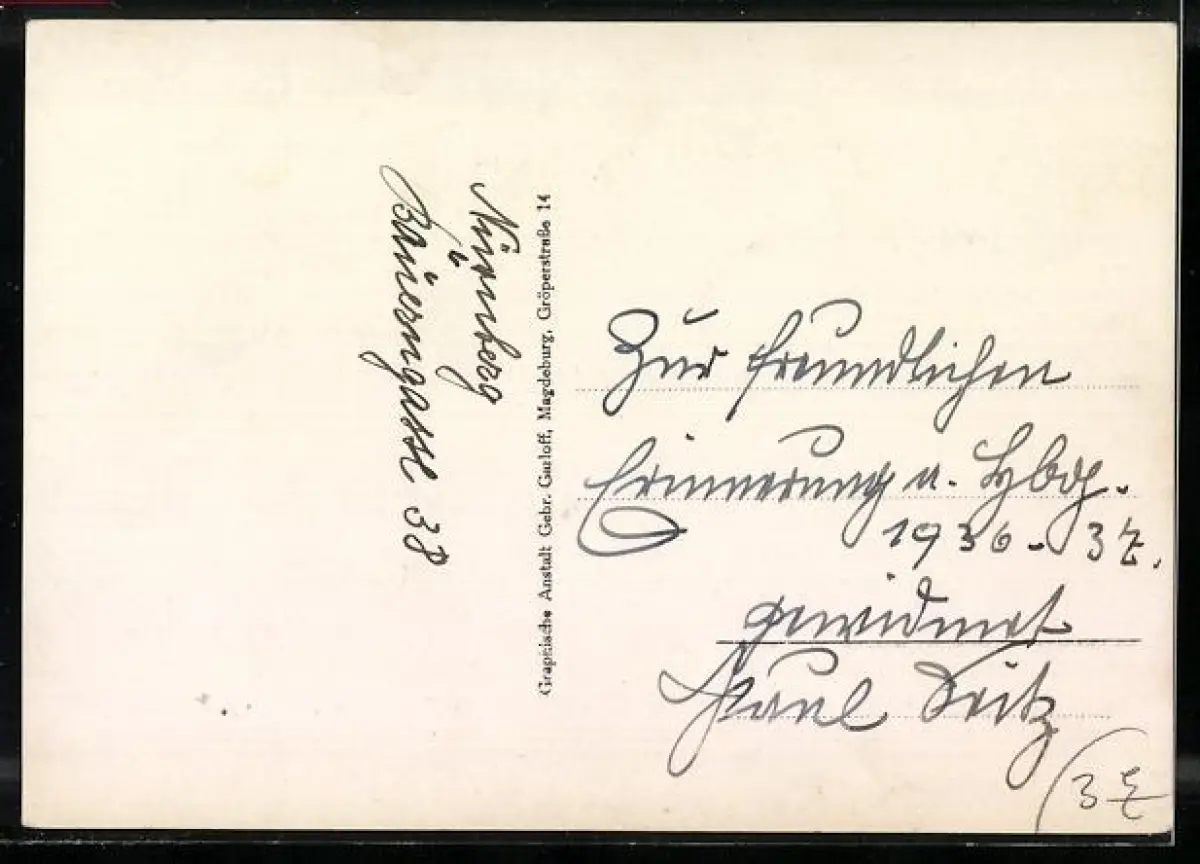 Nürnberg
Bauerngasse 38
Graphische Anstalt Gebr. Garloff, Magdeburg, Gröperstraße 14
Zur freundlichen
Erinnerung u. Hbdg.
1936 - 37.
gewidmet
Paul Seitz